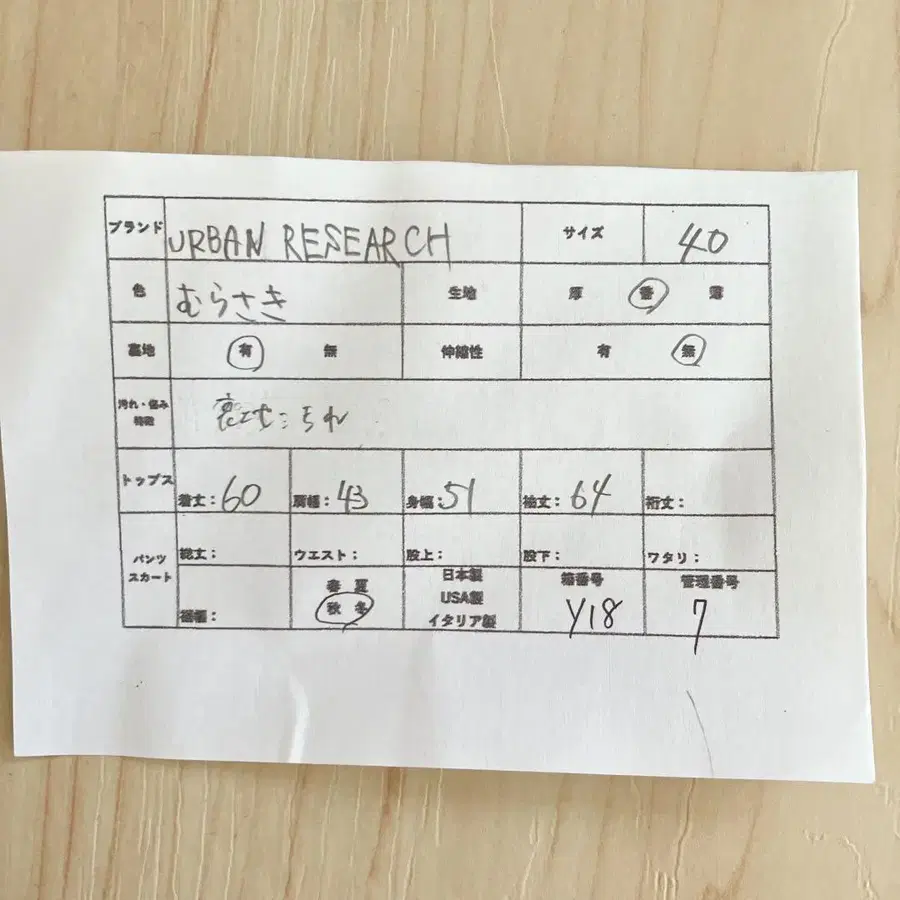 ブランド URBAN RESEARCH サイズ 40
色 むらさき 生地 厚 普 薄
裏地 有 無 伸縮性 有 無
汚れ・傷み
特徴
裏地:きれ
トップス 着丈:60 肩幅:43 身幅:51 袖丈:64 裄丈:
パンツ
スカート
総丈: ウエスト: 股上: 股下: ワタリ:
裾幅:
春 夏
秋 冬
日本製
USA製
イタリア製
箱番号
Y18
管理番号
7